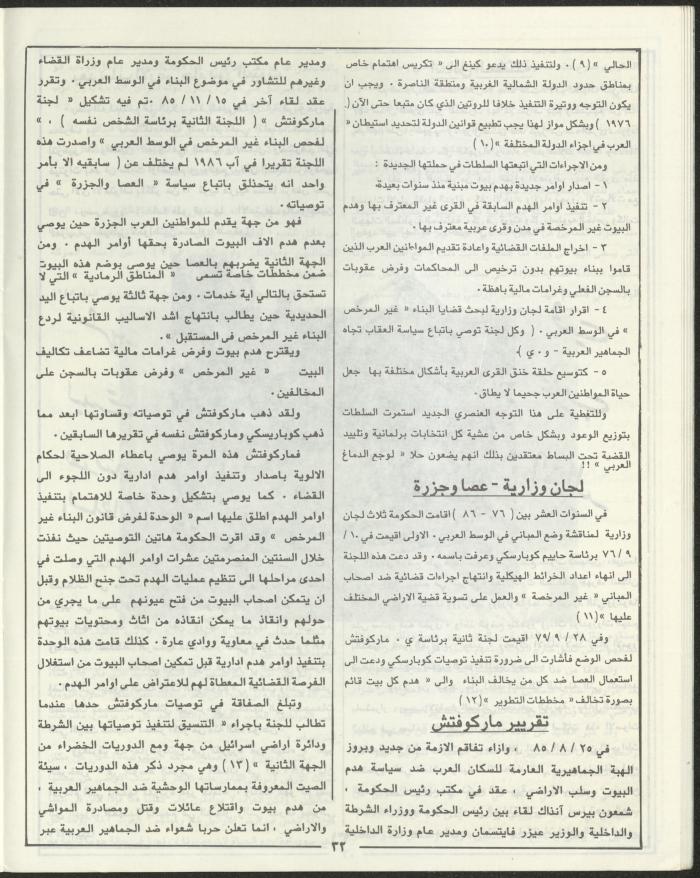 الحالي » ( ٩ ) ٠ ولتنفيذ ذلك يدعو كينغ الى « تكريس اهتمام خاص
بمناطق حدود الدولة الشمالية الغربية ومنطقة الناصرة ٠ ويجب ان
يكون التوجه ووتيرة التنفيذ خلافا للروتين الذي كان متبعا حتى الآن (
١٩٧٦ ) وبشكل مواز لهذا يجب تطبيع قوانين الدولة لتحديد استيطان «
العرب في اجزاء الدولة المختلفة » (١٠ )
ومن الاجراءات التي اتبعتها السلطات في حملتها الجديدة :
١ - اصدار اوامر جديدة بهدم بيوت مبنية منذ سنوات بعيدة٠
٢ - تنفيذ اوامر الهدم السابقة في القرى غير المعترف بها وهدم
البيوت غير المرخصة في مدن وقرى عربية معترف بها ٠
٣ - اخراج الملفات القضائية واعادة تقديم المواطنين العرب الذين
قاموا ببناء بيوتهم بدون ترخيص الى المحاكمات وفرض عقوبات
بالسجن الفعلي وغرامات مالية باهظة ٠
٤ - اقرار اقامة لجان وزارية لبحث قضايا البناء « غير المرخص
» في الوسط العربي ٠ ( وكل لجنة توصي باتباع سياسة العقاب تجاه
الجماهير العربية - و ٠ ي )٠
٥ - كتوسيع حلقة خنق القرى العربية بأشكال مختلفة بها جعل
حياة المواطنين العرب جحيما لا يطاق ٠
وللتغطية على هذا التوجه العنصري الجديد استمرت السلطات
بتوزيع الوعود وبشكل خاص من عشية كل انتخابات برلمانية وتلبيد
القضية تحت البساط معتقدين بذلك انهم يضعون حلا « لوجع الدماغ
العربي » !!
لجان وزارية - عصا وجزرة
في السنوات العشر بين ( ٧٦ - ٨٦ ) اقامت الحكومة ثلاث لجان
وزارية لمناقشة وضع المباني في الوسط العربي ٠ الاولى اقيمت في ١٠ /
٩ / ٧٦ برئاسة حاييم كوبارسكي وعرفت باسمه ٠ وقد دعت هذه اللجنة
الى انهاء اعداد الخرائط الهيكلية وانتهاج اجراءات قضائية ضد اصحاب
المباني « غير المرخصة » والعمل على تسوية قضية الاراضي المختلف
عليها » (١١ )
وفي ٢٨ / ٩ /٧٩ اقيمت لجنة ثانية برئاسة ي ٠ ماركوفتش
لفحص الوضع فأشارت الى ضرورة تنفيذ توصيات كوبارسكي ودعت الى
استعمال العصا ضد كل من يخالف البناء والى « هدم كل بيت قائم
بصورة تخالف « مخططات التطوير » (١٢ )
تقريير ماركوفتش
في ٢٥ / ٨ / ٨٥ ، وازاء تفاقم الازمة من جديد وبروز
الهبة الجماهيرية العارمة للسكان العرب ضد سياسة هدم
البيوت وسلب الاراضي ، عقد في مكتب رئيس الحكومة ،
شمعون بيرس آنذاك لقاء بين رئيس الحكومة ووزراء الشرطة
والداخلية والوزير عيزر فايتسمان ومدير عام وزارة الداخلية
ومدير عام مكتب رئيس الحكومة ومدير عام وزراة القضاء
وغيرهم للتشاور في موضوع البناء في الوسط العربي ٠ وتقرر
عقد لقاء آخر في ١٥ / ١١ / ٨٥ ٠تم فيه تشكيل « لجنة
ماركوفتش » ( اللجنة الثانية برئاسة الشخص نفسه ) ، »
لفحص البناء غير المرخص في الوسط العربي » واصدرت هذه
اللجنة تقريرا في آب ١٩٨٦ لم يختلف عن ( سابقيه الا بأمر
واحد انه يتحذلق باتباع سياسة « العصا والجزرة » في
توصياته ٠
فهو من جهة يقدم للمواطنين العرب الجزرة حين يوصي
بعدم هدم الاف البيوت الصادرة بحقها أوامر الهدم ٠ ومن
الجهة الثانية يضربهم بالعصا حين يوصي بوضع هذه البيوت
ضمن مخططات خاصة تسمى « المناطق الرمادية » التي لا
تستحق بالتالي اية خدمات ٠ ومن جهة ثالثة يوصي باتباع اليد
الحديدية حين يطالب بانتهاج اشد الاساليب القانونية لردع
البناء غير المرخص في المستقبل » ٠
ويقترح هدم بيوت وفرض غرامات مالية تضاعف تكاليف
البيت « غير المرخص » وفرض عقوبات بالسجن على
المخالفين ٠
ولقد ذهب ماركوفتش في توصياته وقساوتها ابعد مما
ذهب كوباريسكي وماركوفتش نفسه في تقريرها السابقين ٠
فماركوفتش هذه المرة يوصي باعطاء الصلاحية لحكام
الالوية باصدار وتنفيذ اوامر هدم ادارية دون اللجوء الى
القضاء ٠ كما يوصي بتشكيل وحدة خاصة للاهتمام بتنفيذ
اوامر الهدم اطلق عليها اسم « الوحدة لفرض قانون البناء غير
المرخص » وقد اقرت الحكومة هاتين التوصيتين حيث نفذت
خلال السنتين المنصرمتين عشرات اوامر الهدم التي وصلت في
احدى مراحلها الى تنظيم عمليات الهدم تحت جنح الظلام وقبل
ان يتمكن اصحاب البيوت من فتح عيونهم على ما يجري من
حولهم وانقاذ ما يمكن انقاذه من اثاث ومحتويات بيوتهم
مثلما حدث في معاوية ووادي عارة ٠ كذلك قامت هذه الوحدة
بتنفيذ اوامر هدم ادارية قبل تمكين اصحاب البيوت من استغلال
الفرصة القضائية المعطاة لهم للاعتراض على اوامر الهدم ٠
وتبلغ الصفاقة في توصيات ماركوفتش حدها عندما
تطالب للجنة باجراء « التنسيق لتنفيذ توصياتها بين الشرطة
ودائرة اراضي اسرائيل من جهة ومع الدوريات الخضراء من
الجهة الثانية » (١٣ ) وهي مجرد ذكر هذه الدوريات ، سيئة
الصيت المعروفة بممارساتها الوحشية ضد الجماهير العربية ،
من هدم بيوت واقتلاع عائلات وقتل ومصادرة المواشي
والاراضي ، انما تعلن حربا شعواء ضد الجماهير العربية عبر
٣٢